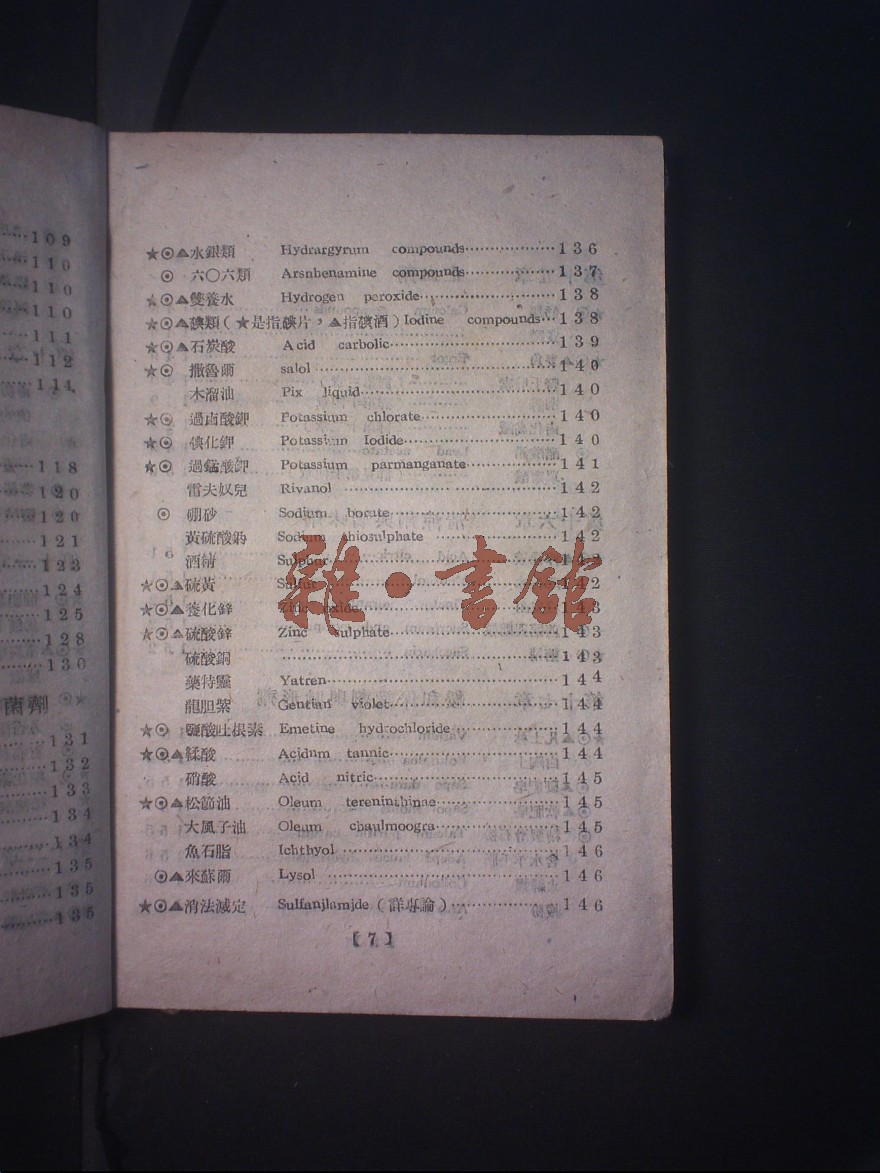 109
110
110
110
111
112
114
118
120
120
121
123
124
125
128
130
菌劑
131
132
133
134
134
135
135
135
★⊙▲水銀類 Hydrargyrum compounds 136
⊙ 六〇六類 Arsnbenamine compounds 137
★⊙▲雙養水 Hydrogen peroxide 138
★⊙▲碘類(★是指碘片,▲指碘酒)Iodine compounds 138
★⊙▲石炭酸 Acid carbolic 139
★⊙ 撒魯爾 salol 140
木溜油 Pix liquid 140
★⊙ 過卤酸鉀 Potassium chlorate 140
★⊙ 碘化鉀 Potassium Iodide 140
★⊙ 過錳酸鉀 Potassium parmanganate 141
雷夫奴兒 Rivanol 142
⊙ 硼砂 Sodium borate 142
黃硫酸鈉 Sodium thiosulphate 142
酒精 Sulphor 142
★⊙▲硫黃 Sulfur 142
★⊙▲養化鋅 Zinc oxide 143
★⊙▲硫酸鋅 Zinc sulphate 143
硫酸銅 143
藥特靈 Yatren 144
龍胆紫 Gentian violet 144
★⊙ 鹽酸吐根素 Emetine hydrochloride 144
★⊙▲鞣酸 Acidnm tannic 144
硝酸 Acid nitric 145
★⊙▲松節油 Oleum tereninthinae 145
大風子油 Oleum chaulmoogra 145
魚石脂 Ichthyol 146
⊙▲來蘇爾 Lysol 146
★⊙▲消法滅定 Sulfanjlamjde(詳專論) 146
【7】
雜·書館